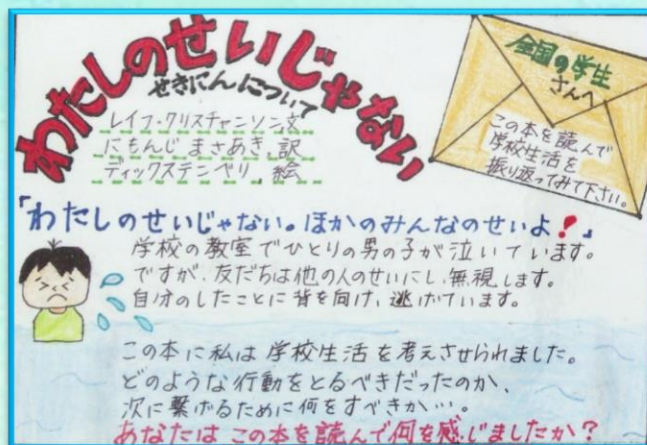 わたしのせいじゃない
せきにんについて
レイフ・クリスチャンソン,文
にもんじ まさあき,訳
ディックステンベリ,絵
全国の学生
さんへ
この本を読んで
学校生活を
振り返ってみて下さい。
「わたしのせいじゃない。ほかのみんなのせいよ!」
学校の教室でひとりの男の子が泣いています。
ですが、友だちは他の人のせいにし、無視します。
自分のしたことに背を向け、逃げています。
この本に私は学校生活を考えさせられました。
どのような行動をとるべきだったのか、
次に繋げるために何をすべきか…。
あなたはこの本を読んで何を感じましたか?